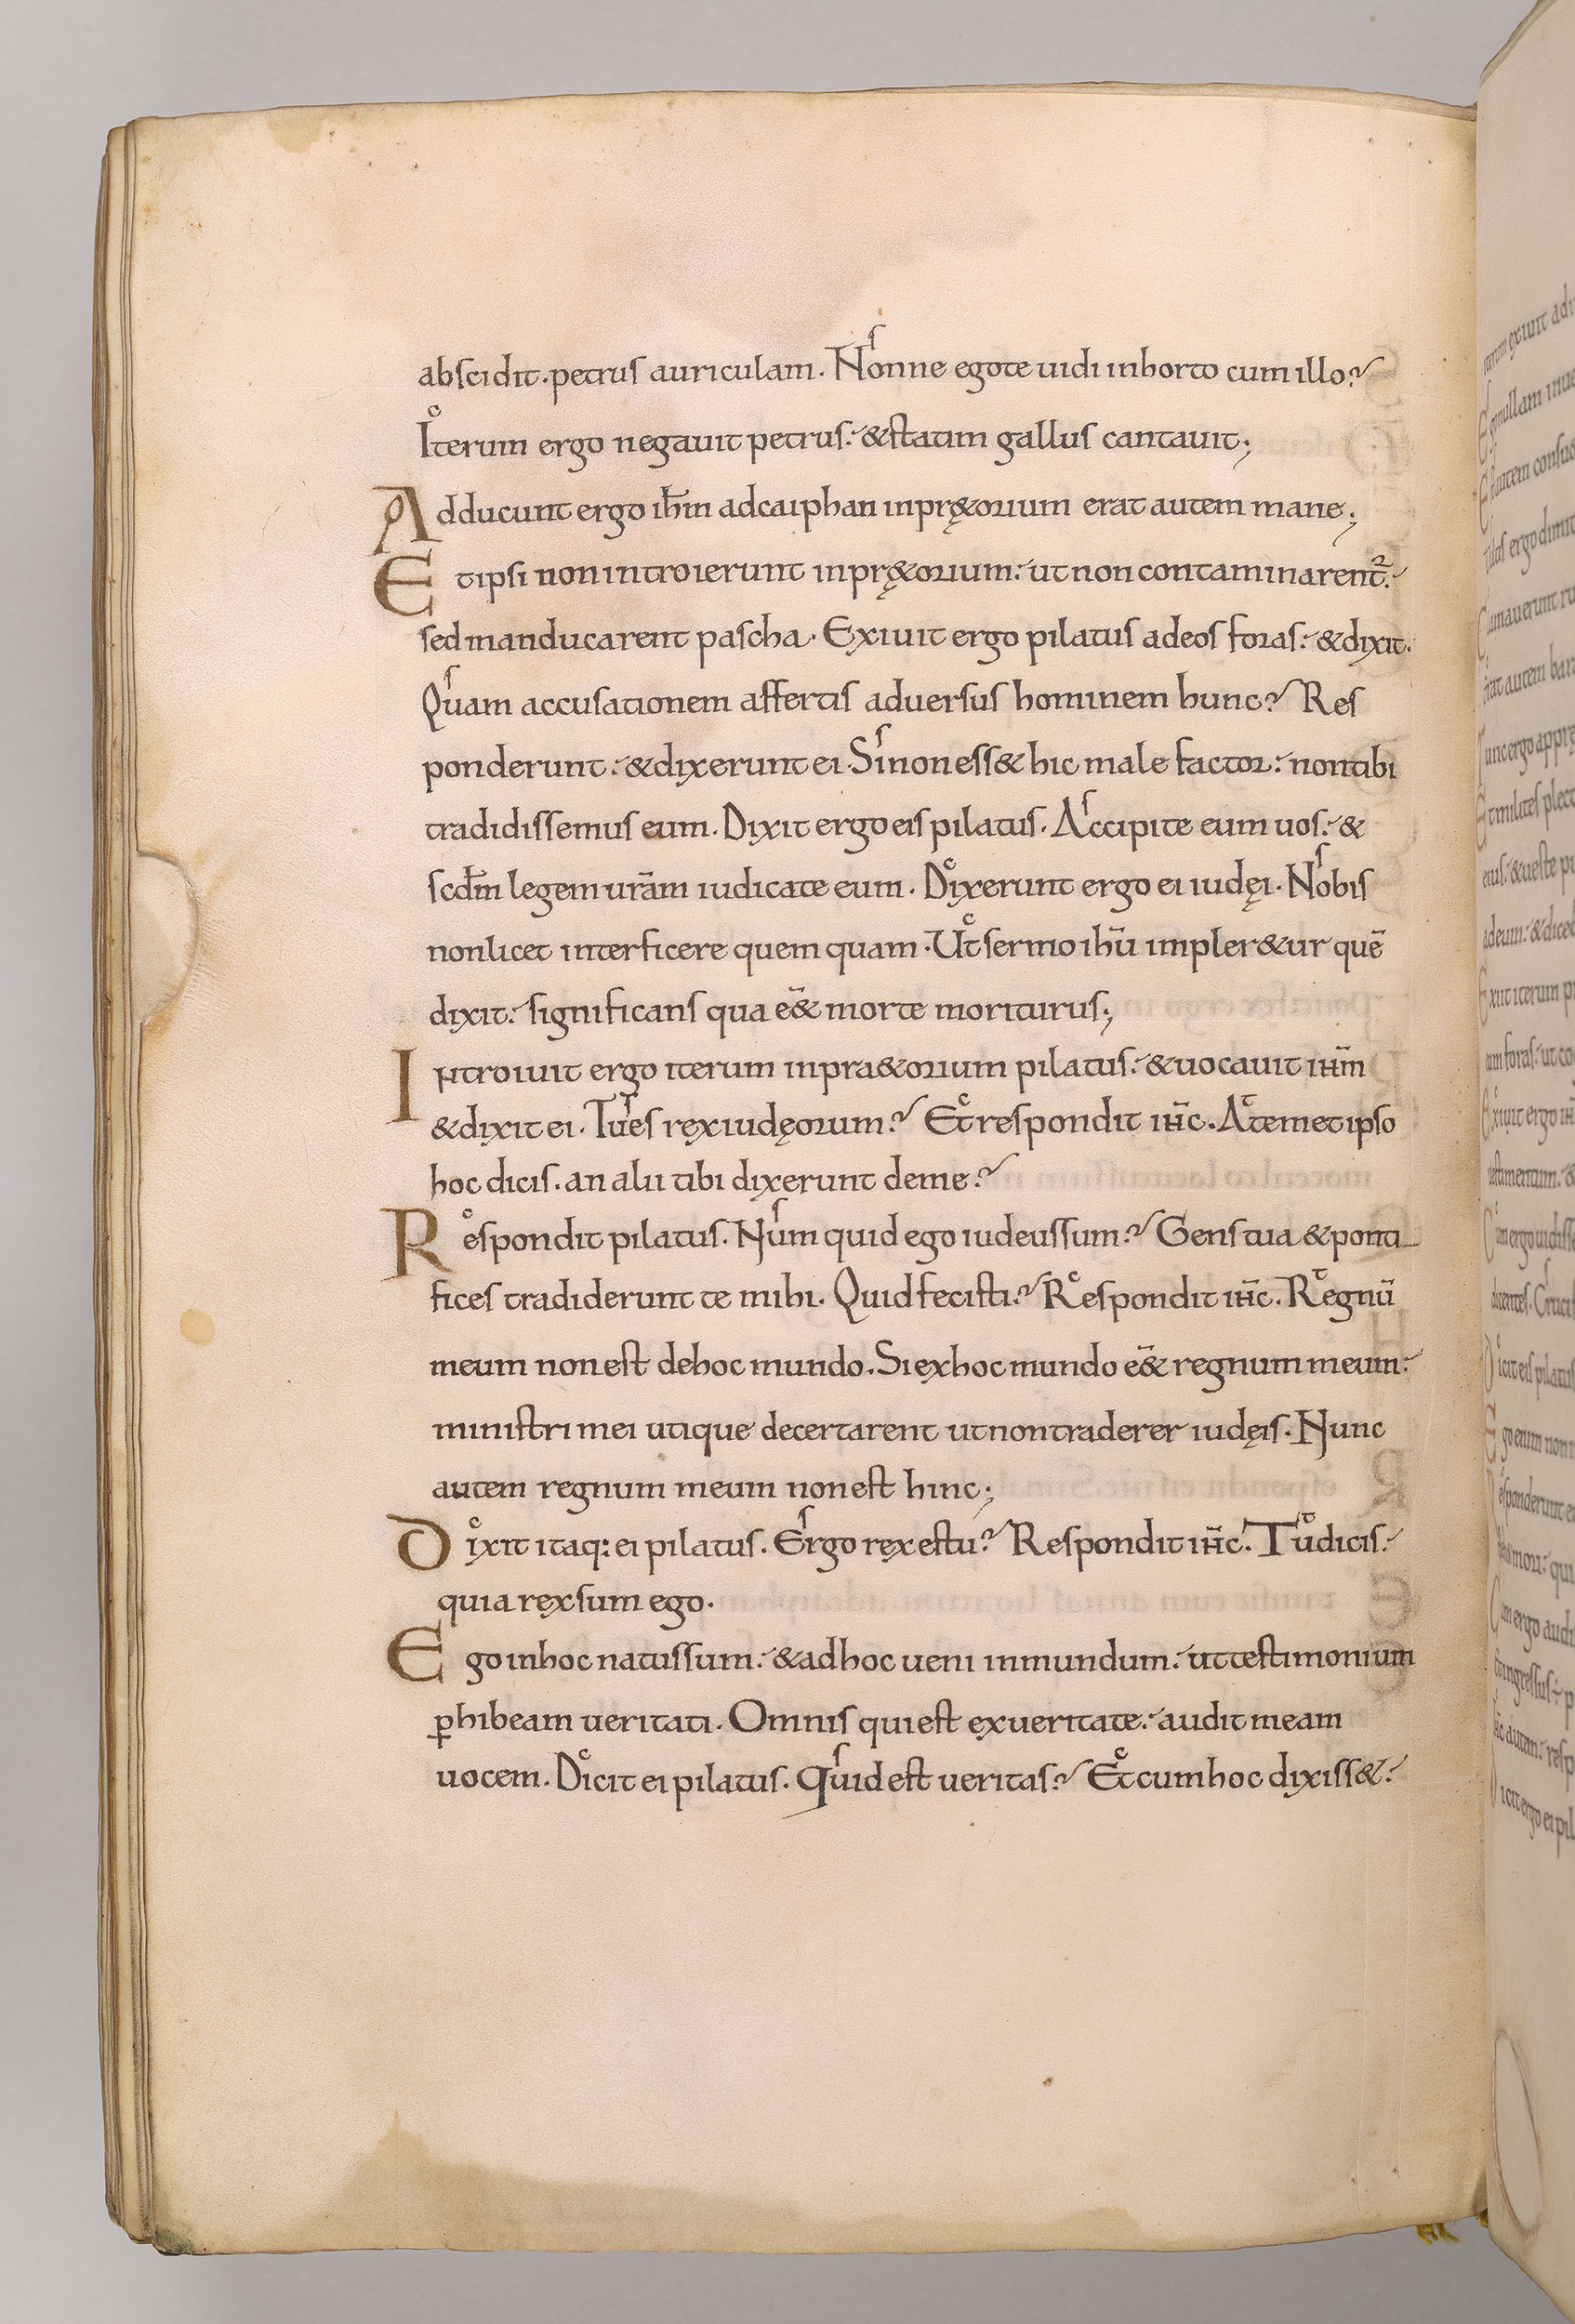 abscidit. petrus auriculam. Nſonne egote uidi inhorto cum illo?
Ic̄terum ergo negauit petrus: &statim gallus cantauit;
Adducunt ergo ih̄m adcaiphan inprę&orium erat autem mane;
Etipsi non introierunt inprę&orium: ut non contaminarent᷑:
sed manducarent pascha. Exiuit ergo pilatus adeos foras: &dixit.
Qſuam accusationem affertis aduersus hominem hunc? Res
ponderunt: &dixerunt ei. Sſinoness& hic male factor: nontibi
tradidissemus eum. Dixit ergo eis pilatus. Aſccipite eum uos: &
scdm̄ legem urām iudicate eum. Dcixerunt ergo ei iudęi. Nſobis
nonlicet interficere quem quam. Uct sermo ihū impler&ur quē
dixit: significans qua eē& morte moriturus;
Introiuit ergo iterum inpra&orium pilatus: &uocauit ihm̄
&dixit ei. Tuſes rex iudęorum? Ect respondit ihc̄. Actemet ipso
hoc dicis. an alii tibi dixerunt deme?
Rcespondit pilatus. Nſum quid ego iudeussum? Gens tua &ponti
fices tradiderunt te mihi. Quid fecisti? Rcespondit ihc̄. Rcegnū
meum non est dehoc mundo. Si exhoc mundo eē& regnum meum:
ministri mei utique decertarent utnontraderer iudęis. Nunc
autem regnum meum nonest hinc;
Dcixit itaq: ei pilatus. Eſrgo rex estu? Respondit ihc̄. Tcudicis:
quia rex sum ego.
Ego inhoc natussum: &adhoc ueni inmundum: uttestimonium
ꝑhibeam ueritati. Omnis quiest exueritate: audit meam
uocem. Dcicit ei pilatus. Qſuidest ueritas? Ect cumhoc dixiss&: